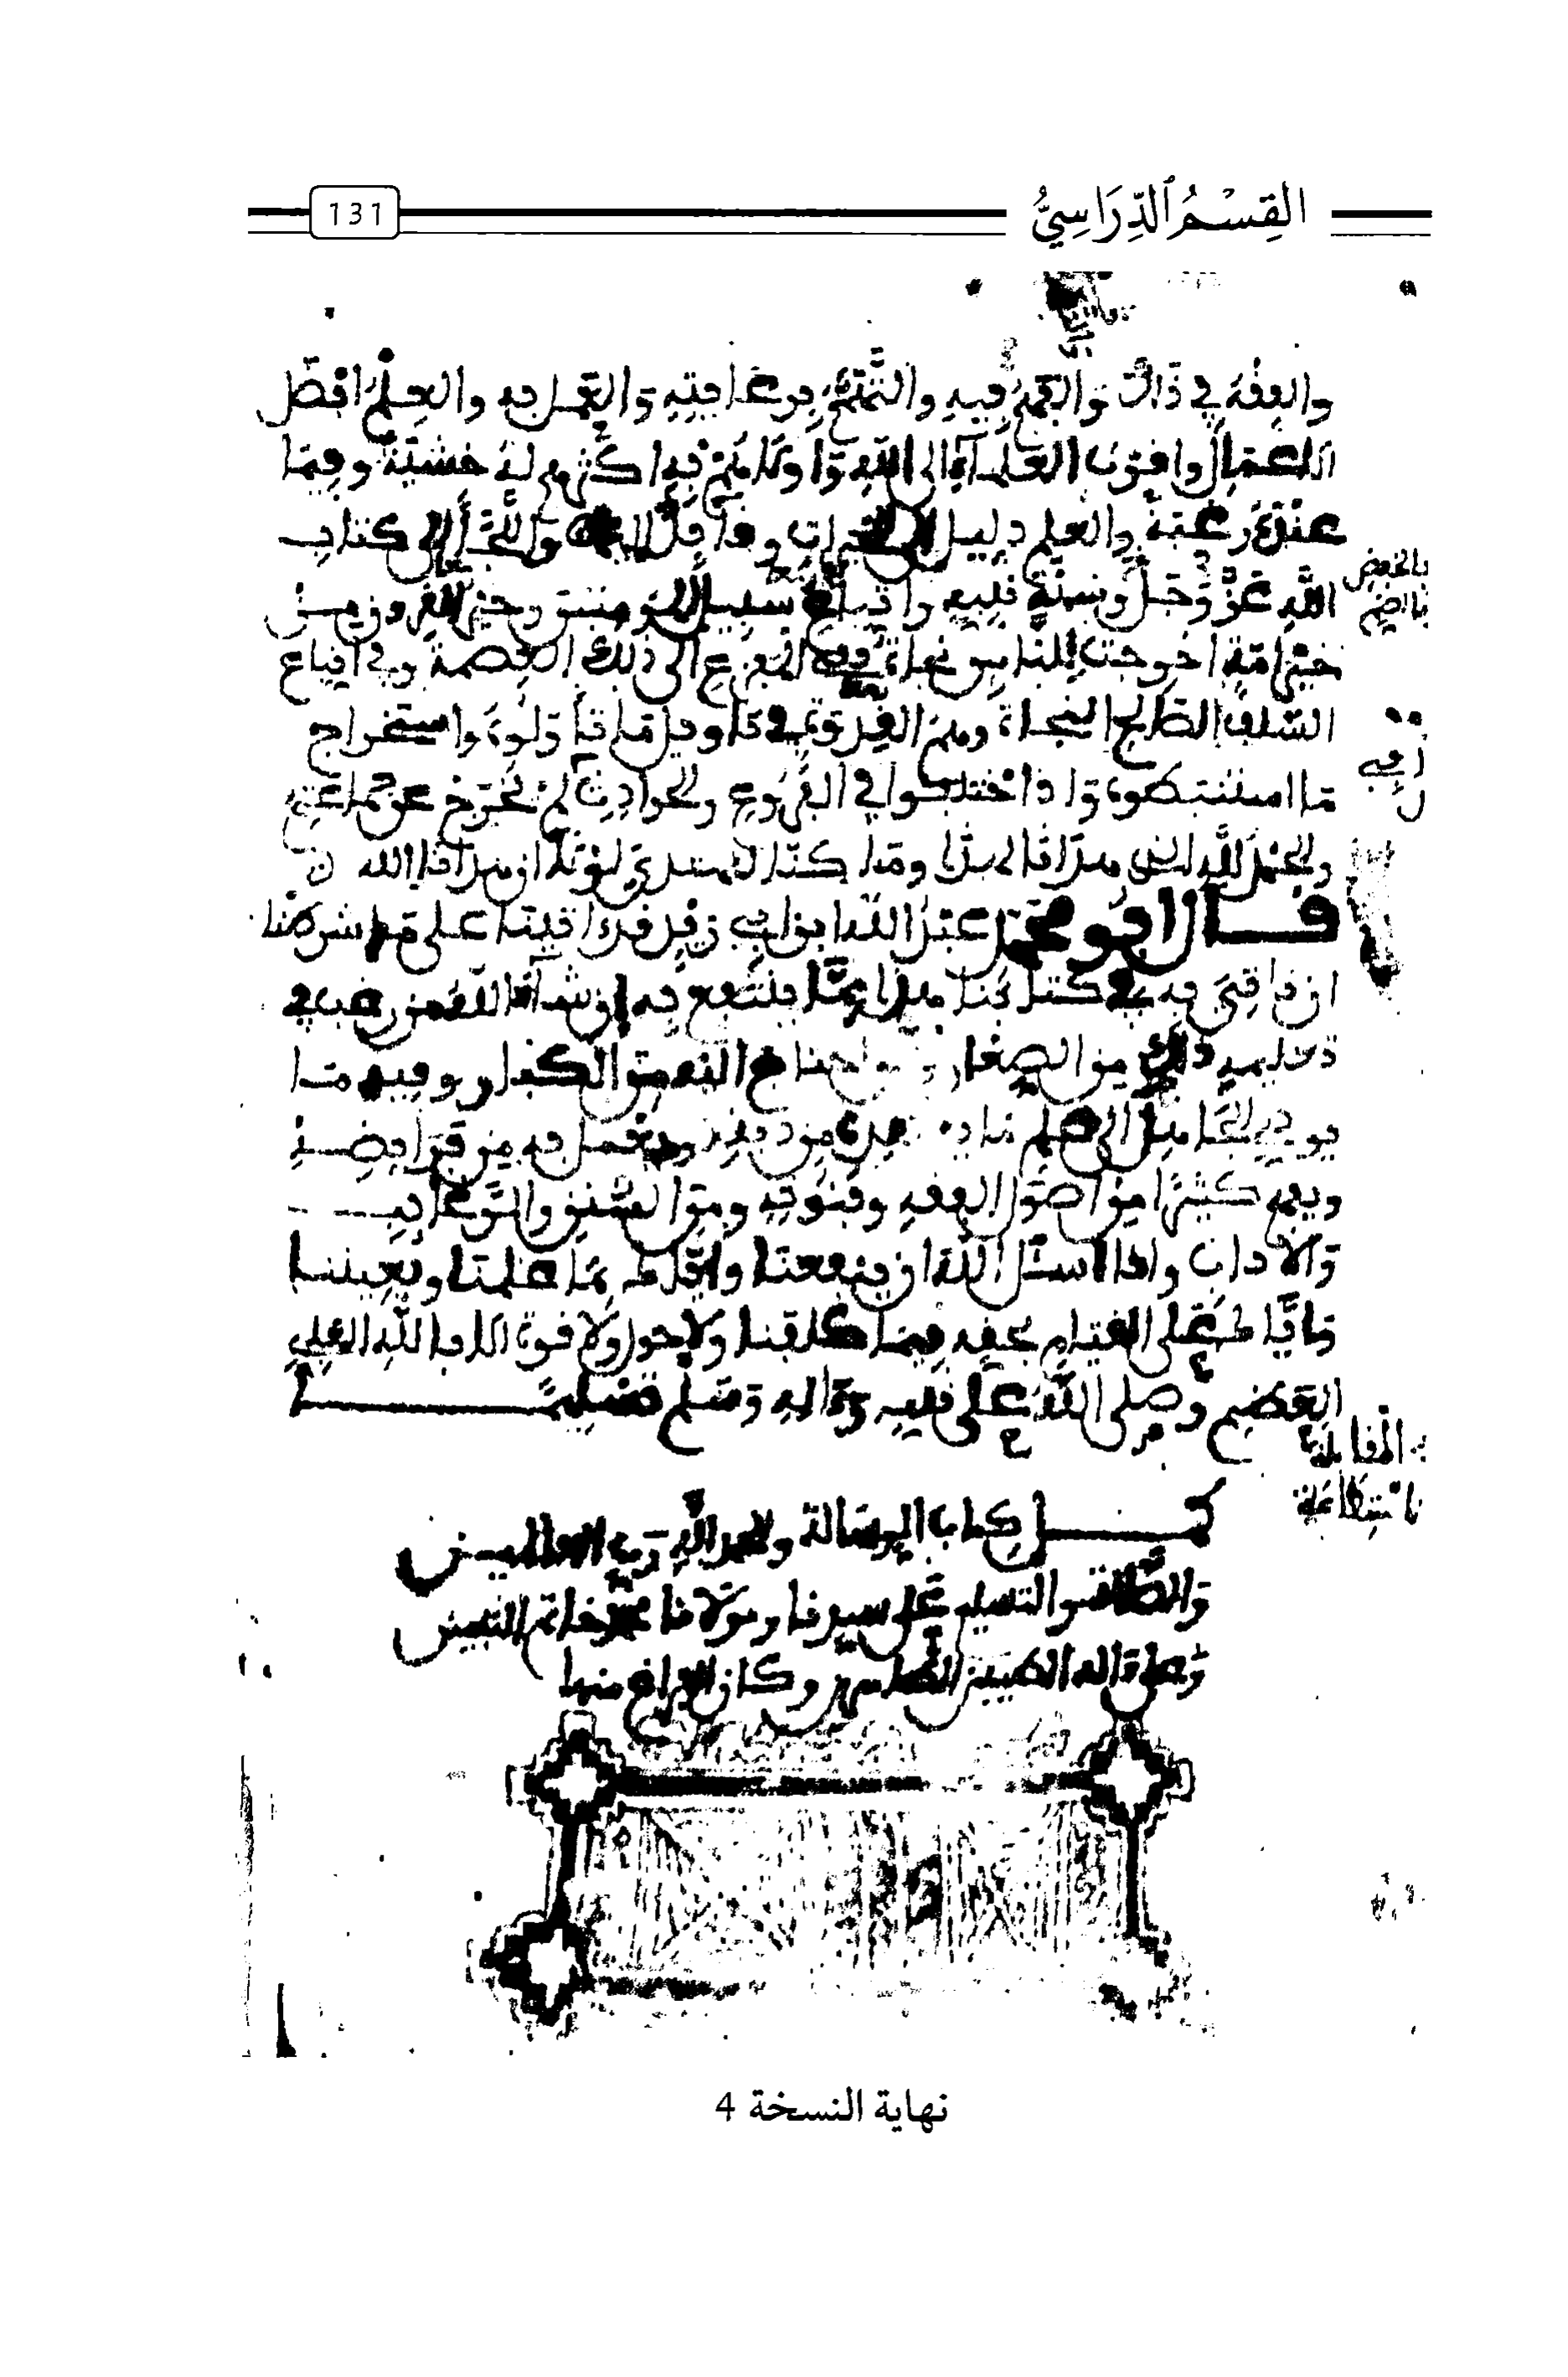 القِسْمُ ٱلدِّرَاسِيُّ
131
والفقه في ذلك والفهم فيه والتهمم برعايته والعمل به والعلم افضل
الاعمال واقرب العلماء الى الله واولاهم به اكثرهم له خشية وفيما
عنده رغبة والعلم دليل الى الخيرات وقائد اليها واللجأ الى كتاب
الله عز وجل وسنة نبيه واتباع سبيل المومنين وخير القرون من
خير امة اخرجت للناس نجاة ففي المفزع الى ذلك العصمة وفي اتباع
السلف الصالح النجاة وهم القدوة في تاويل ما تأولوه واستخراج
ما استنبطوه واذا اختلفوا في الفروع والحوادث لم نخرج عن جماعتهم
والحمد لله الذي هدانا لهذا وما كنا لنهتدي لولا ان هدانا الله
قال ابو محمد عبد الله ابن ابي زيد قد اتينا على ما شرطنا
ان ناتي به في كتابنا هذا مما ينتفع به إن شاء الله من رغب في
تعليم ذلك من الصغار ومن احتاج اليه من الكبار وفيه ما
يودي الجاهل الى علم ما يعتقده من دينه ويعمل به من فرايضه
ويفهم كثيرا من اصول الفقه وفنونه ومن السنن والرغايب
والاداب وانا اسئل الله ان ينفعنا واياك بما علمنا ويعيننا
واياك على القيام بحقه فيما كلفنا ولا حول ولا قوة الا بالله العلي
العظيم وصلى الله على نبيه وءاله وسلم تسليما
كمل كتاب الرسالة والحمد لله رب العالمين
والصلاة والتسليم على سيدنا ومولانا محمد خاتم النبيين
وعلى ءاله الطيبين الطاهرين وكان الفراغ منها
نهاية النسخة 4